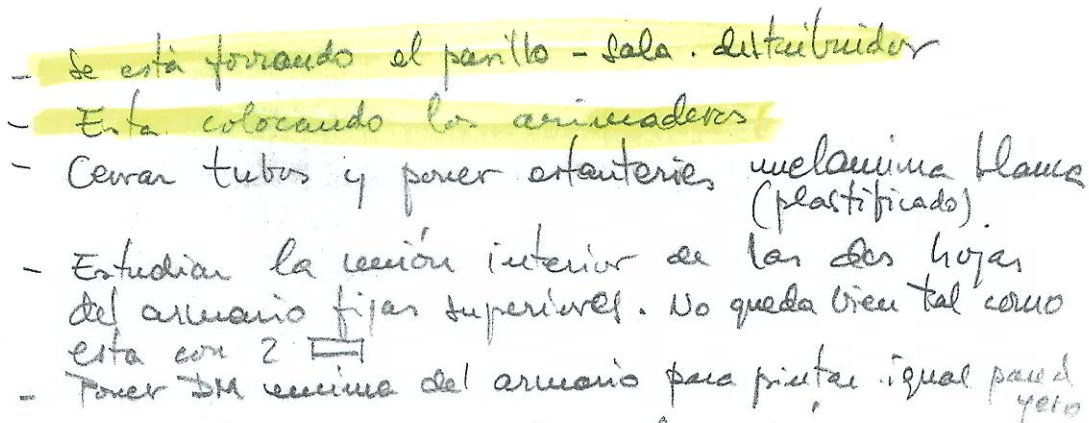 - Se está forrando el pasillo - sala. distribuidor
- Esta colocando los arrimaderos
- Cerrar tubos y poner estanteries melamina blanca
(plastificado)
- Estudiar la unión interior de las dos hojas
del armario fijas superiores. No queda bien tal como
esta con 2
- Poner DM encima del armario para pintar igual pared
yeso